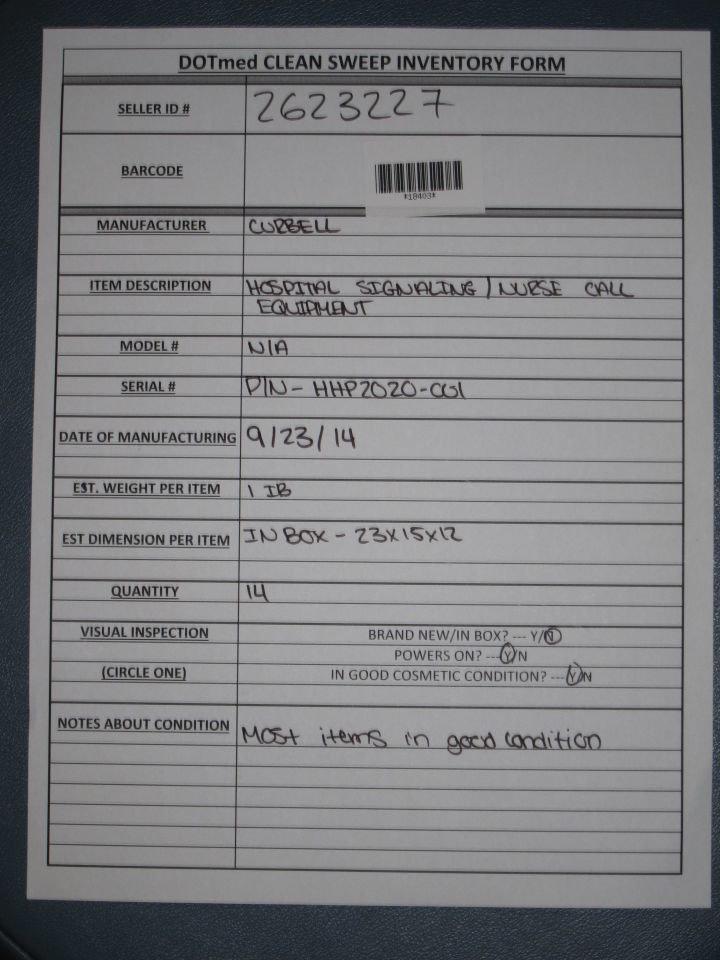 DOTmed CLEAN SWEEP INVENTORY FORM
SELLER ID # 2623227
BARCODE
*18403*
MANUFACTURER CURBELL
ITEM DESCRIPTION HOSPITAL SIGNALING / NURSE CALL
EQUIPMENT
MODEL # N/A
SERIAL # P/N - HHP2020-CG1
DATE OF MANUFACTURING 9/23/14
EST. WEIGHT PER ITEM 1 IB
EST DIMENSION PER ITEM IN BOX - 23X15X12
QUANTITY 14
VISUAL INSPECTION BRAND NEW/IN BOX? --- Y/N
POWERS ON? ---Y/N
(CIRCLE ONE) IN GOOD COSMETIC CONDITION? ---Y/N
NOTES ABOUT CONDITION Most items in good condition